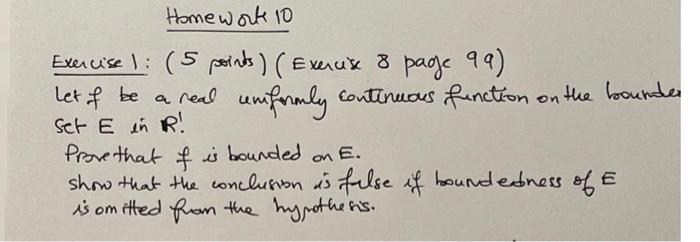 Homework 10
Exercise 1: (5 points) (Exercise 8 page 99)
Let f be a real uniformly continuous function on the bounde
set E in R¹.
Prove that f is bounded on E.
show that the conclusion is false if boundedness of E
is omitted from the hypothesis.